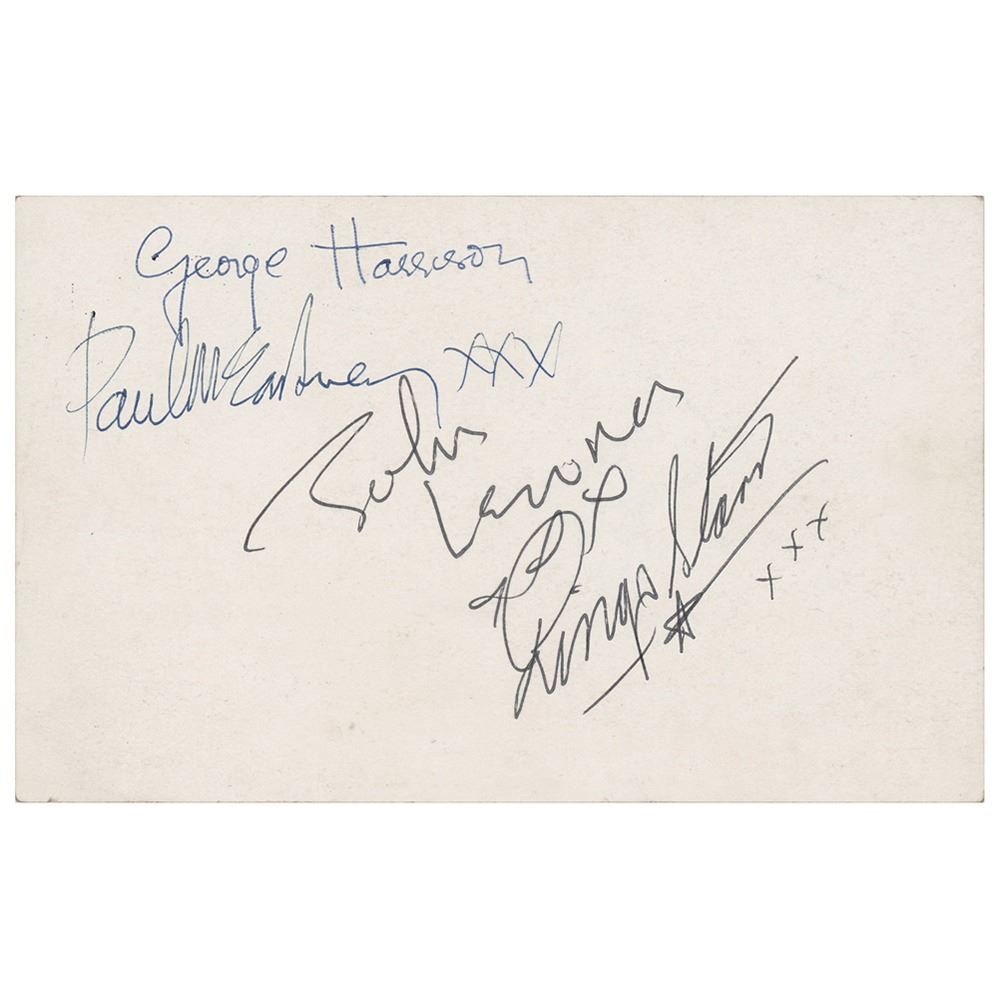 George Harrison
Paul McCartney xxx
John Lennon x
Ringo Starr xxx